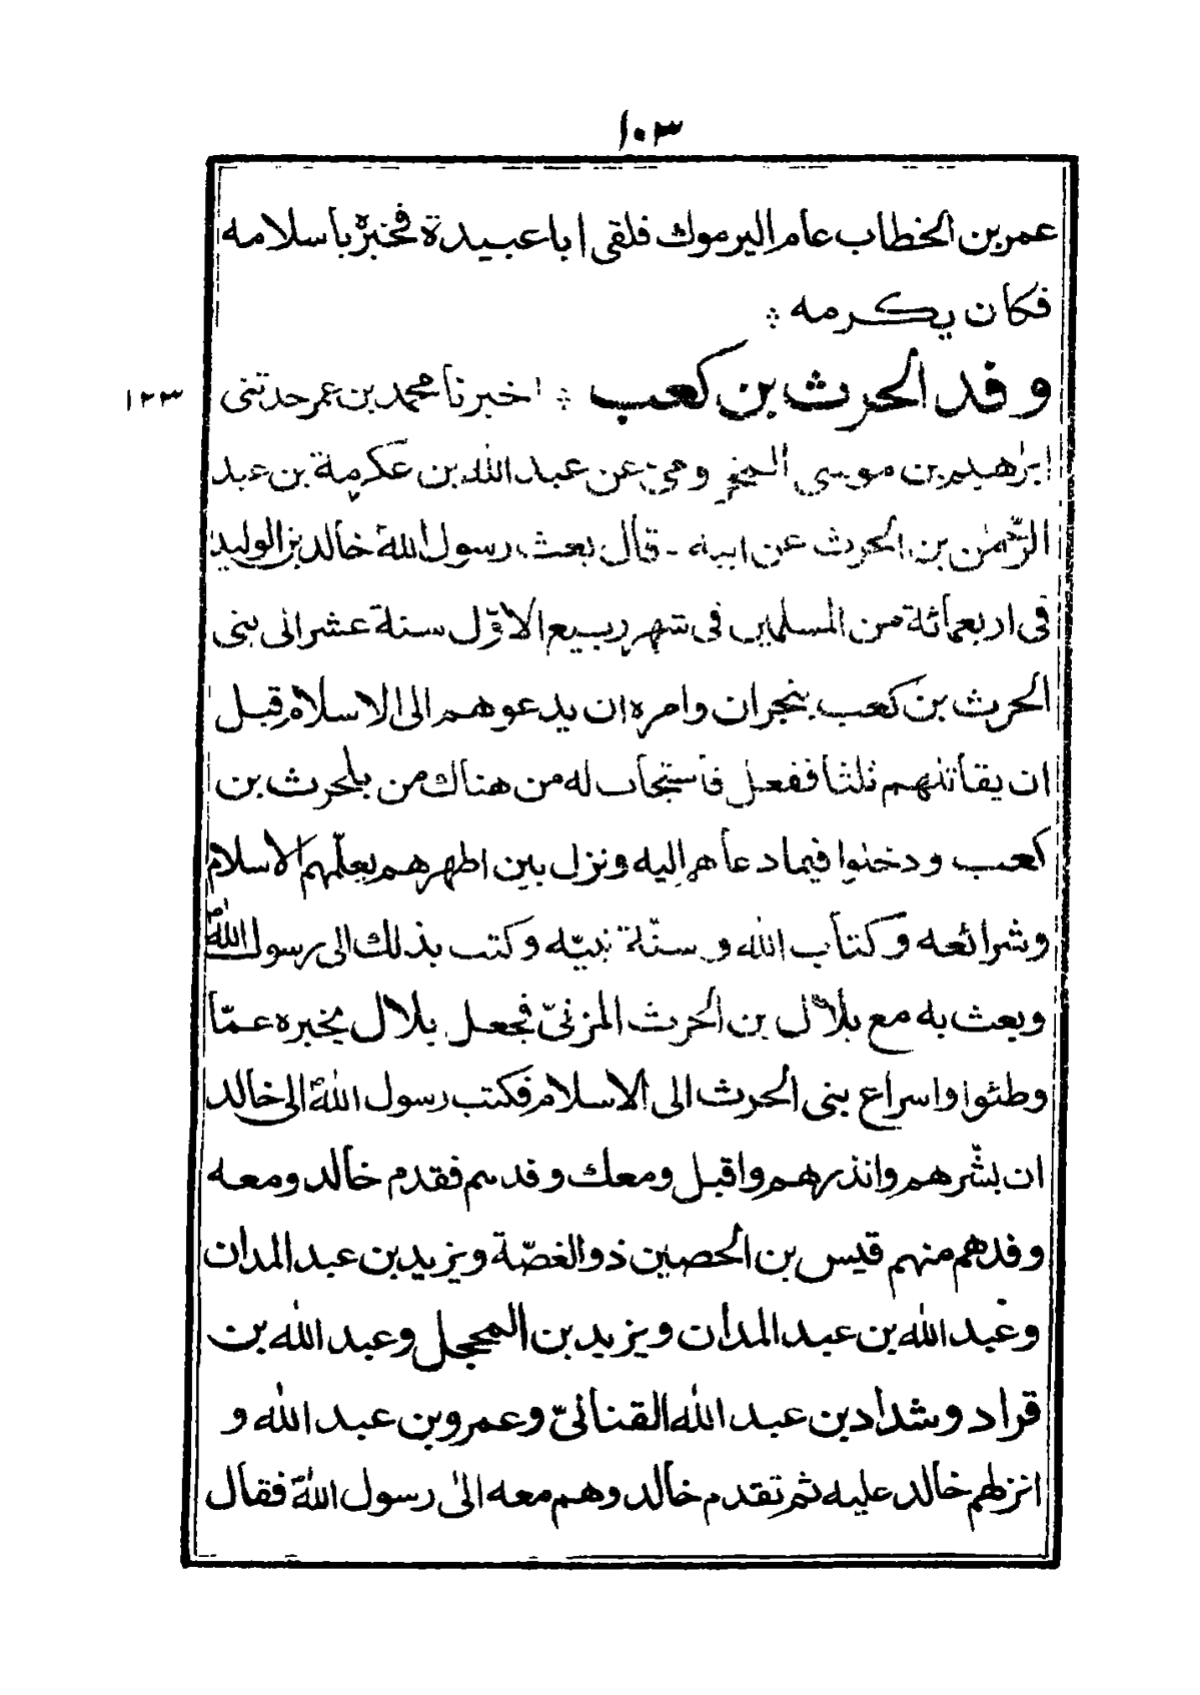 ١٠٣
عمر بن الخطاب عام اليرموك فلقى ابا عبيدة فخبّره باسلامه
فكان يكرمه ؞
وفد الحرث بن كعب ؞ اخبرنا محمد بن عمر حدثنى
١٢٣
ابرٰهيم بن موسى المخزومىّ عن عبد الله بن عكرمة بن عبد
الرّحمٰن بن الحرث عن ابيه ـ قال بعث رسول اللهؐ خالد بن الوليد
فى اربعمائة من المسلمين فى شهر ربيع الاوّل سنة عشر الى بنى
الحرث بن كعب بنجران وامره ان يدعوهم الى الاسلام قبل
ان يقاتلهم ثلثا ففعل فاستجاب له من هناك من بلحرث بن
كعب ودخلوا فيما دعاهم اليه ونزل بين اظهرهم يعلّمهم الاسلام
وشرائعه وكتاب الله وسنّة نبيّه وكتب بذلك الى رسول اللهؐ
وبعث به مع بلال بن الحرث المزنىّ فجعل بلال يخبره عمّا
وطئوا واسراع بنى الحرث الى الاسلام فكتب رسول اللهؐ الى خالد
ان بشّرهم وانذرهم واقبل ومعك وفدهم فقدم خالد ومعه
وفدهم منهم قيس بن الحصين ذو الغصّة ويزيد بن عبد المدان
وعبد الله بن عبد المدان ويزيد بن المحجل وعبد الله بن
قراد وشداد بن عبد الله القنانىّ وعمرو بن عبد الله و
انزلهم خالد عليه ثم تقدم خالد وهم معه الىٰ رسول اللهؐ فقال